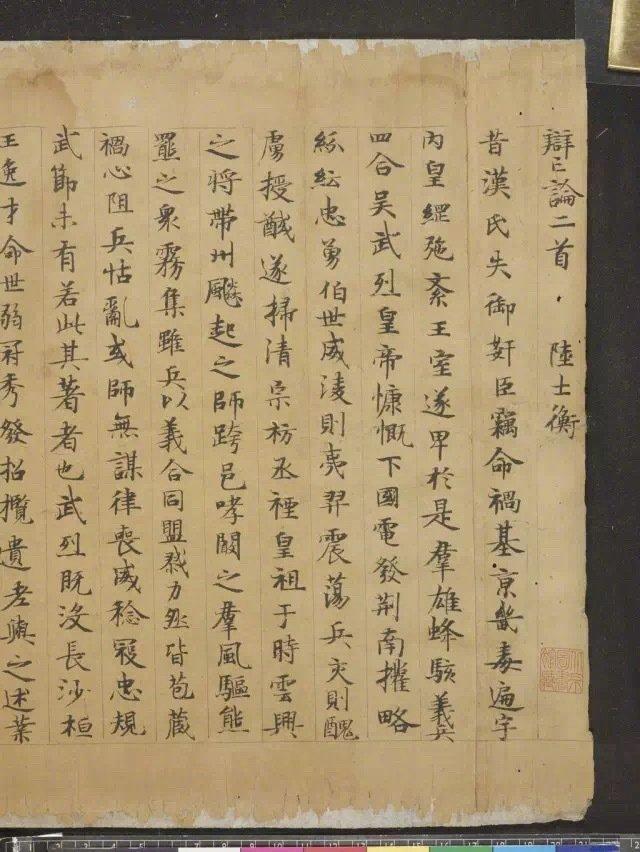 辯亡論二首 · 陸士衡
昔漢氏失御姧臣竊命禍基京畿毒遍宇
内皇綱弛紊王室遂卑於是羣雄蜂駭義兵
四合吳武烈皇帝慷慨下國電發荊南權略
紛紜忠勇伯世威淩則夷羿震蕩兵交則醜
虜授馘遂掃清宗祊丞禋皇祖于時雲興
之將帶州飈起之師跨邑哮闞之羣風驅熊
羆之衆霧集雖兵以義合同盟戮力然皆苞藏
禍心阻兵怙亂或師無謀律喪威稔寇忠規
武節未有若此其著者也武烈既沒長沙桓
王逸才命世弱冠秀發招攬遺老與之述業